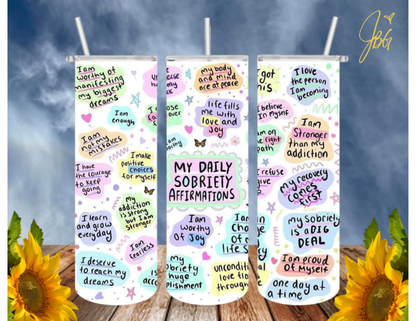 JBG
I am
worthy of
manifesting
my biggest
dreams
I am
enough
I am
not my
mistakes
I make
positive
choices
for myself
I have
the courage
to keep
going
my
addiction
is strong
but I am
stronger
I learn
and grow
everyday
I am
fearless
I deserve
to reach my
dreams
my body
and mind
are at peace
over
life fills
me with
love and
Joy
MY DAILY
SOBRIETY
AFFIRMATIONS
I am
worthy
of Joy
I am in
of m
life
my
huge
unconditional
love
through
got
this
I love
the person
I am
becoming
I believe
in Myself
I am
Stronger
than my
addiction
am on
the right
path
refuse
give
my recovery
comes
first
my Sobriety
is a BIG
DEAL
I am proud
of Myself
one day
at a time